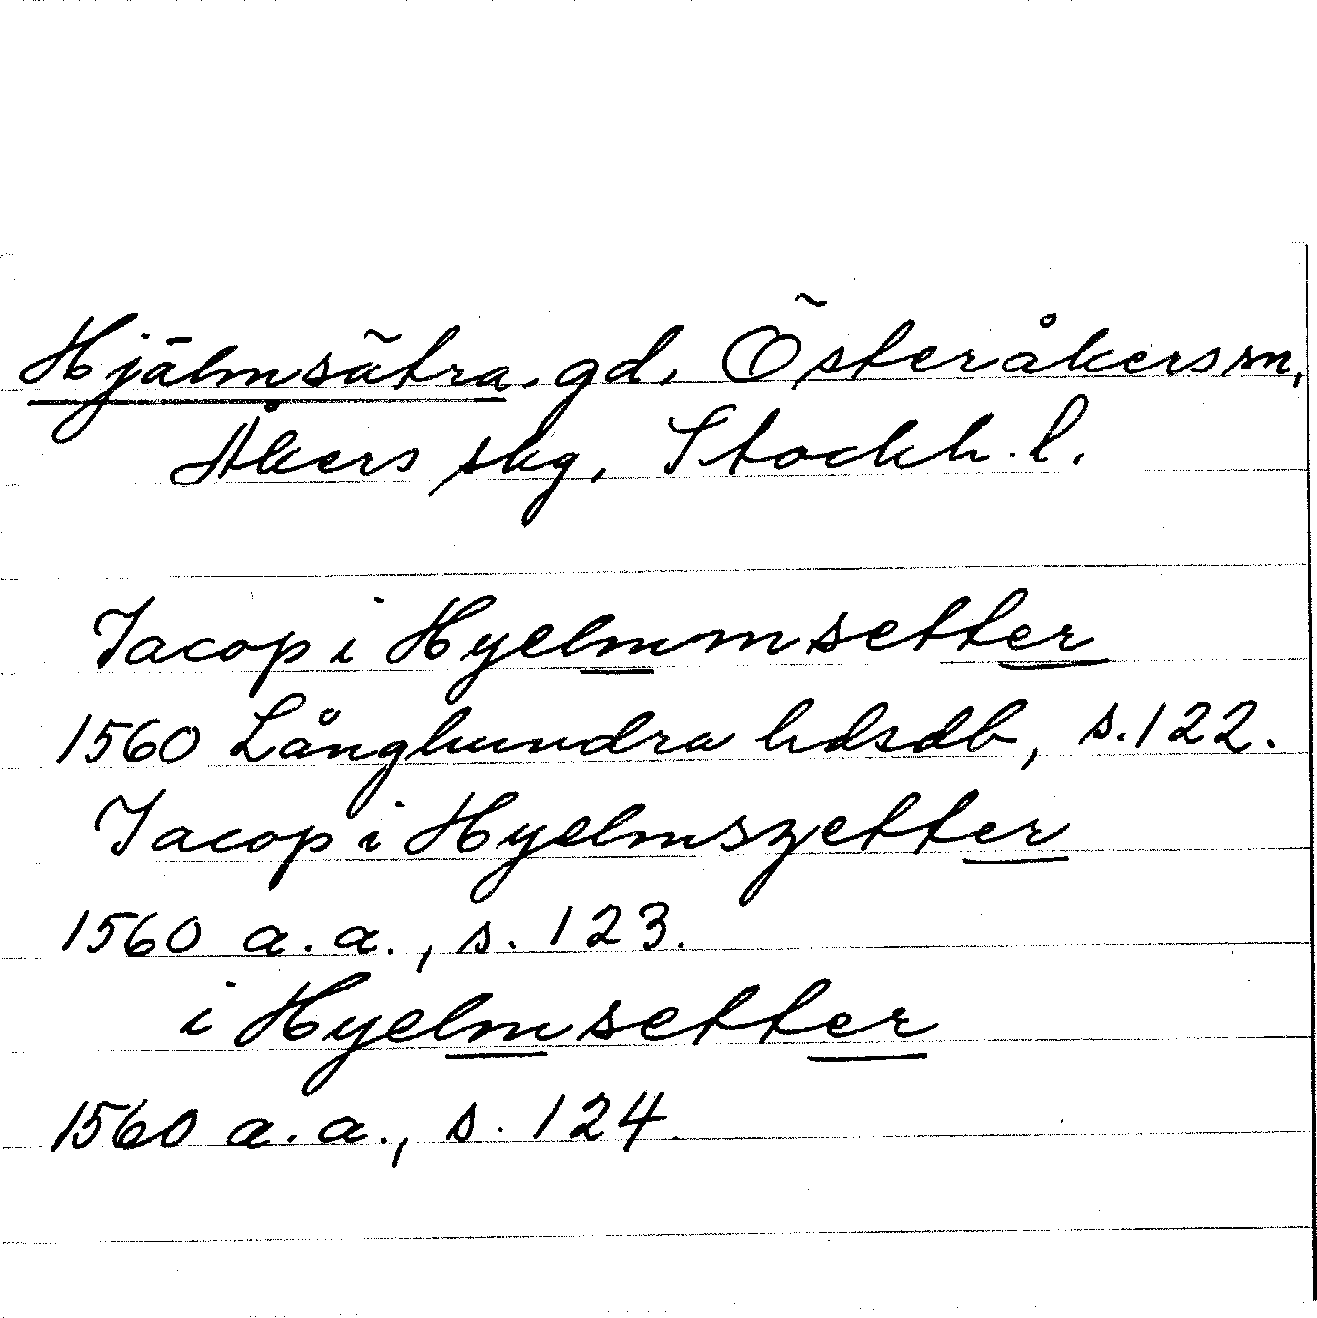 Hjälmsätra, gd, Österåkers sn,
Åkers skg, Stockh. l.
Jacop i Hyelmmsetter
1560 Långhundra hdsdb, s. 122.
Jacop i Hyelmszetter
1560 a.a., s. 123.
i Hyelmsetter
1560 a.a., s. 124.